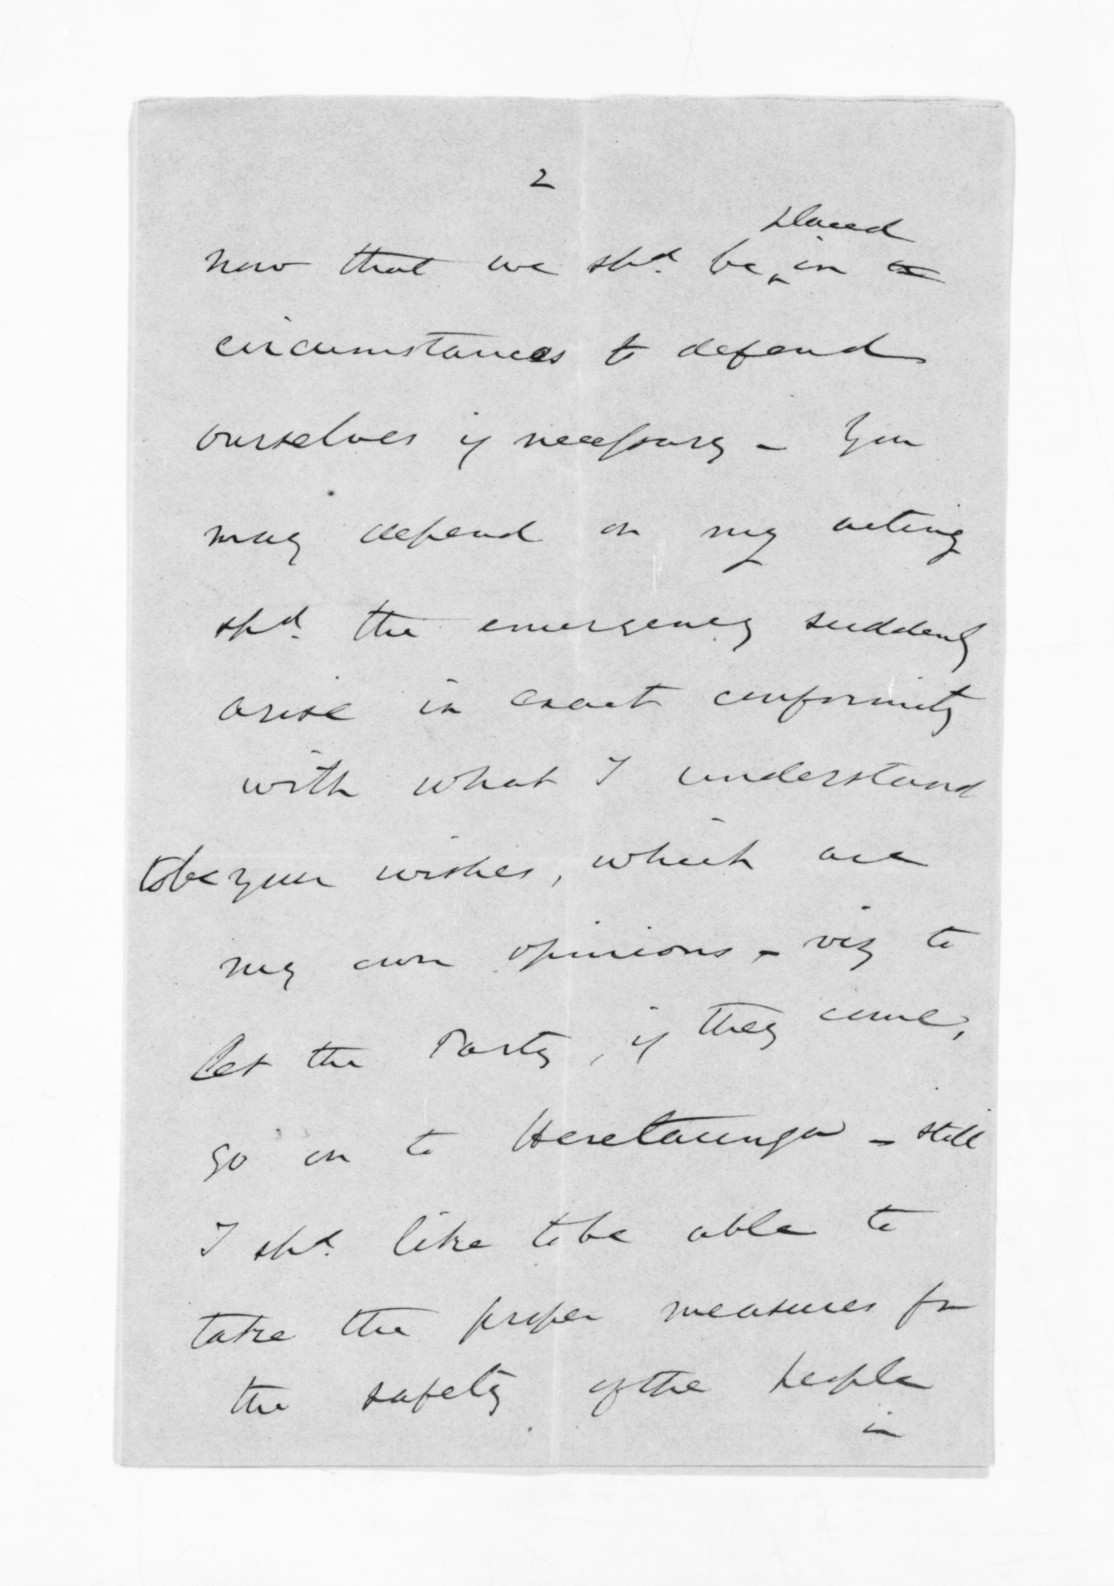 2
placed
now that we shd. be in to
circumstances to defend
ourselves if necessary - You
may depend on my acting
shd. the emergency suddenly
arise in exact conformity
with what I understand
to be your wishes, which are
my own opinions - viz to
let the Party, if they come,
go on to Heretaunga - still
I shd. like to be able to
take the proper measures for
the safety of the people
in